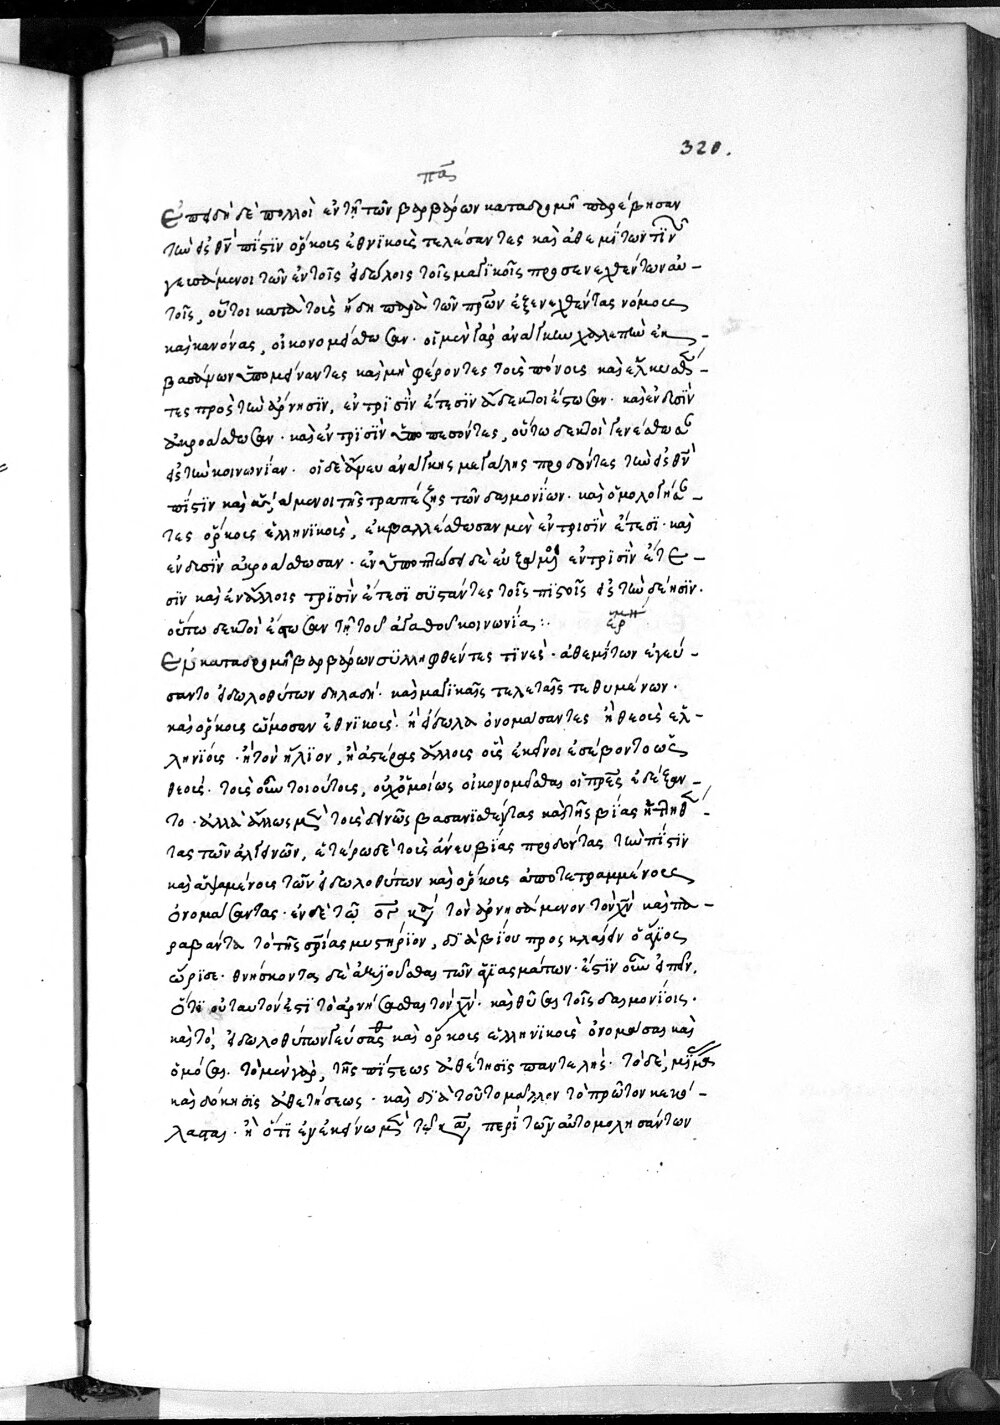 320.
πα
Ἐπειδὴ δὲ πολλοὶ ἐν τῇ τῶν βαρβάρων καταδρομῇ παρέβησαν
τὴν εἰς θν πίστιν ὅρκοις ἐθνικοῖς τελέσαντες καὶ ἀθεμίτων τινῶν
γευσάμενοι τῶν ἐν τοῖς εἰδώλοις τοῖς μαγικοῖς προσενεχθέντων αὐ-
τοῖς, οὗτοι κατὰ τοὺς ἤδη παρὰ τῶν πρων ἐξενεχθέντας νόμους
καὶ κανόνας, οἰκονομείσθωσαν. οἱ μὲν γὰρ ἀνάγκην χαλεπὴν ἐκ
βασάνων ὑπομείναντες καὶ μὴ φέροντες τοὺς πόνους καὶ ἑλκυσθέν-
τες πρὸς τὴν ἄρνησιν, ἐν τρισὶν ἔτεσιν ἄδεκτοι ἔστωσαν. καὶ ἐν δυσὶν
ἀκροάσθωσαν. καὶ ἐν τρισὶν ὑποπεσόντες, οὕτω δεκτοὶ γενέσθωσαν
εἰς τὴν κοινωνίαν. οἱ δὲ ἄνευ ἀνάγκης μεγάλης προδόντες τὴν εἰς θν
πίστιν καὶ ἁψάμενοι τῆς τραπέζης τῶν δαιμονίων. καὶ ὁμολογήσαν-
τες ὅρκους ἑλληνικοὺς, ἐκβαλλέσθωσαν μὲν ἐν τρισὶν ἔτεσι. καὶ
ἐν δυσὶν ἀκροάσθωσαν. ἐν ὑποπτώσει δὲ εὐξάμενοι ἐν τρισὶν ἔτε-
σιν καὶ ἐν ἄλλοις τρισὶν ἔτεσι συστάντες τοῖς πιστοῖς εἰς τὴν δέησιν.
οὕτω δεκτοὶ ἔστωσαν τῇ τοῦ ἀγαθοῦ κοινωνίᾳ:. ἑρμη
Ἐν καταδρομῇ βαρβάρων συλληφθέντες τινὲς. ἀθεμίτων ἐγεύ-
σαντο εἰδωλοθύτων δηλαδή. καὶ μαγικαῖς τελεταῖς τεθυμένων.
καὶ ὅρκοις ὤμοσαν ἐθνικοῖς. ἢ εἴδωλα ὀνομάσαντες ἢ θεοὺς ἑλ-
ληνίους. ἢ τὸν ἥλιον, ἢ ἀστέρας ἄλλους οὓς ἐκεῖνοι ἐσέβοντο ὡς
θεούς. τοὺς οὖν τοιούτους, οὐχ ὁμοίως οἰκονομεῖσθαι οἱ πρες ἐδέξαν-
το. ἀλλὰ ἄλλως μὲν τοὺς δεινῶς βασανισθέντας καὶ τῆς βίας ἡττηθέν-
τας τῶν ἀλγεινῶν, ἑτέρως δὲ τοὺς ἄνευ βίας προδόντας τὴν πίστιν
καὶ ἁψαμένους τῶν εἰδωλοθύτων καὶ ὅρκους ἀποτετραμμένους
ὀνομάσαντας. ἐν δὲ τῷ ογ καν τὸν ἀρνησάμενον τὸν χν καὶ πα-
ραβάντα τὸ τῆς σριας μυστήριον, διὰ βίου προσκλαίειν ὁ ἅγιος
ὥρισε. θνήσκοντας δὲ ἀξιοῦσθαι τῶν ἁγιασμάτων. ἔστιν οὖν εἰπεῖν,
ὅτι οὐ ταυτόν ἐστι τὸ ἀρνήσασθαι τὸν χν. καὶ θῦσαι τοῖς δαιμονίοις.
καὶ τὸ, εἰδωλοθύτων γεύσασθαι καὶ ὅρκους ἑλληνικοὺς ὀνομάσαι καὶ
ὀμόσαι. τὸ μὲν γὰρ, τῆς πίστεως ἀθέτησις παντελής. τὸ δὲ,
καὶ δόκησις ἀθετήσεως. καὶ διὰ τοῦτο μᾶλλον τὸ πρῶτον κεκό-
λασται. ἢ ὅτι ἐν ἐκείνῳ μὲν περὶ τῶν αὐτομολησάντων